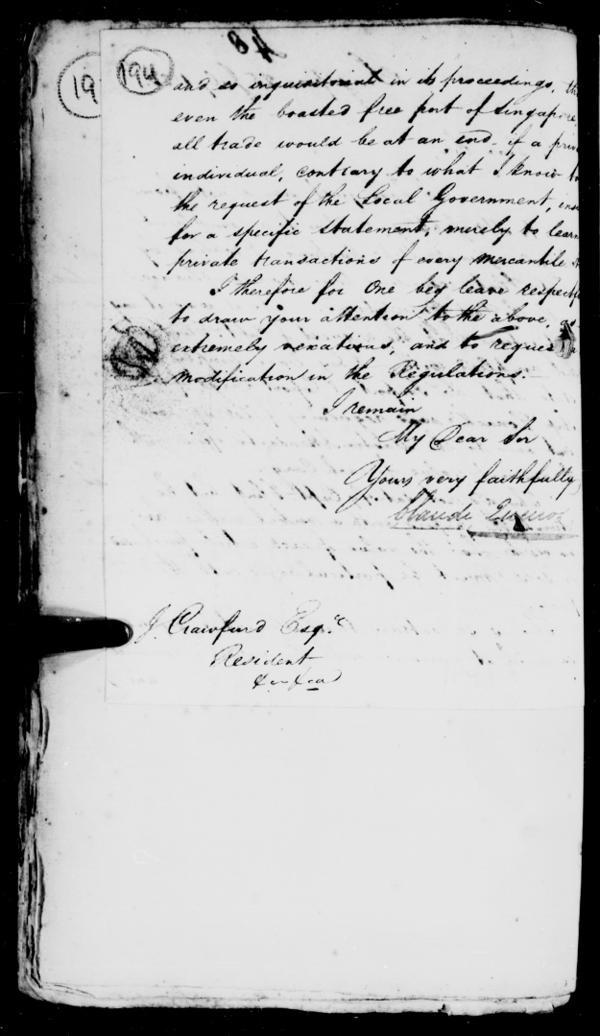 19
194
and so inquisitorial in its proceedings, th
even the boasted free port of Singapore
all trade would be at an end, if a priv
individual, contrary to what I know to
the request of the Local Government,
for a specific statement, merely to learn
private transactions of every mercantile
I therefore for One beg leave respect
to draw your attention to the above, as
extremely vexatious, and to reques
modification in the Regulations.—
I remain
My Dear Sir
Yours very faithfully
Claude Queiros
J. Crawfurd Esqre
Resident
&c &ca